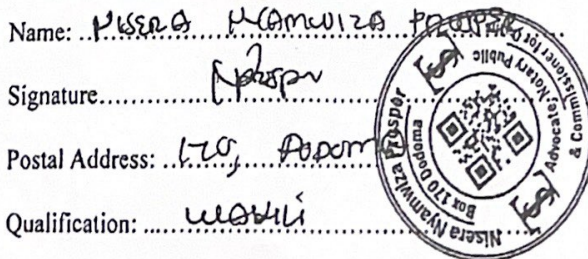 Name: NISERA NYAMWIZA PROSPER
Signature
Postal Address: 170, DODOMA
Qualification: WAKILI
Nisera Nyamwiza Prosper
Advocate, Notary Public
& Commissioner for
Box 170 Dodoma